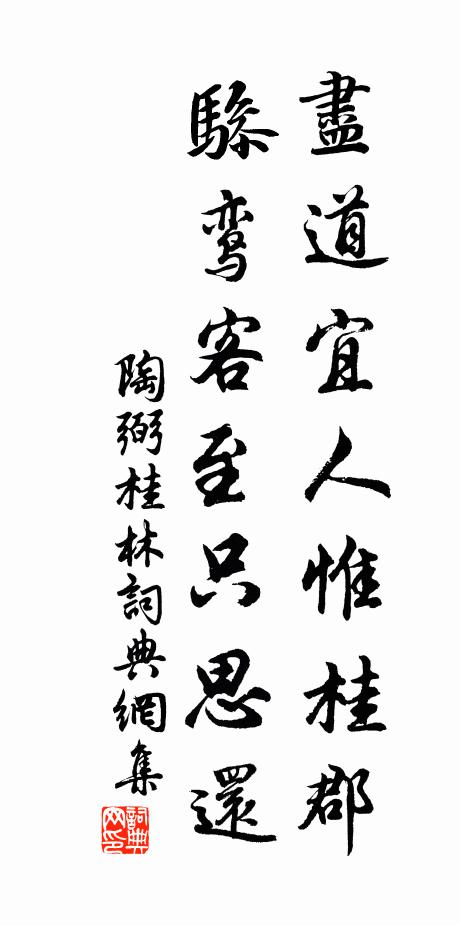 盡道宜人惟桂郡
驂鸞客至只思還
陶弼桂林詞典網集
詞典網印